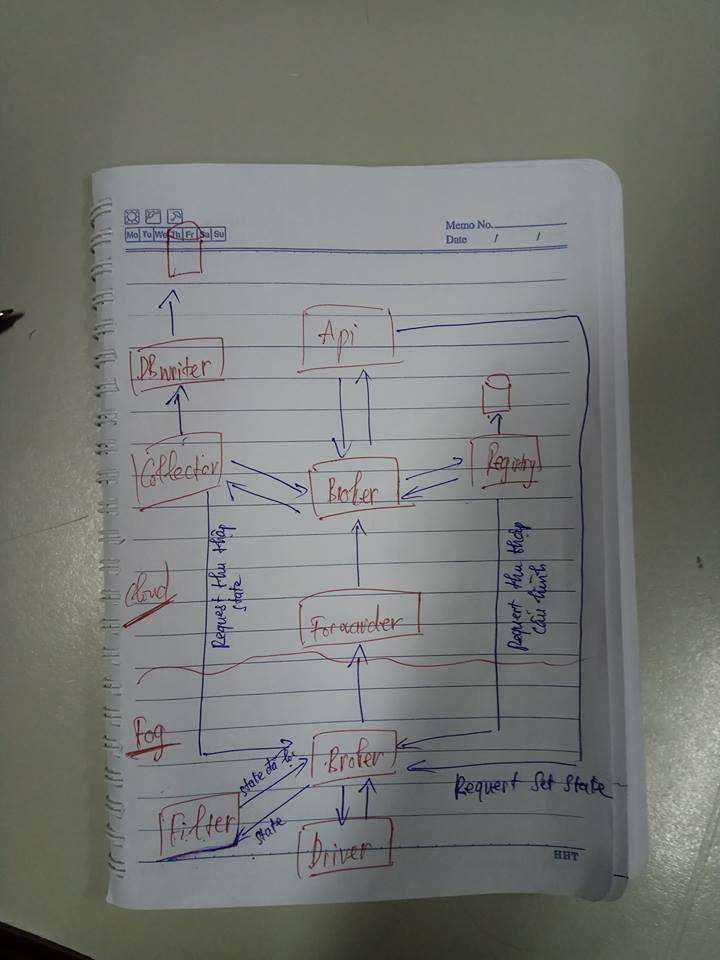 Mo Tu We Th Fr Sa Su
Memo No.
Date / /
Api
DBwriter
Collector
Broker
Registry
Request thu thập
state
Request thu thập
cấu hình
Cloud
Forwarder
Fog
Broker
state đã lọc
Request Set State
Filter
state
Driver
HHT